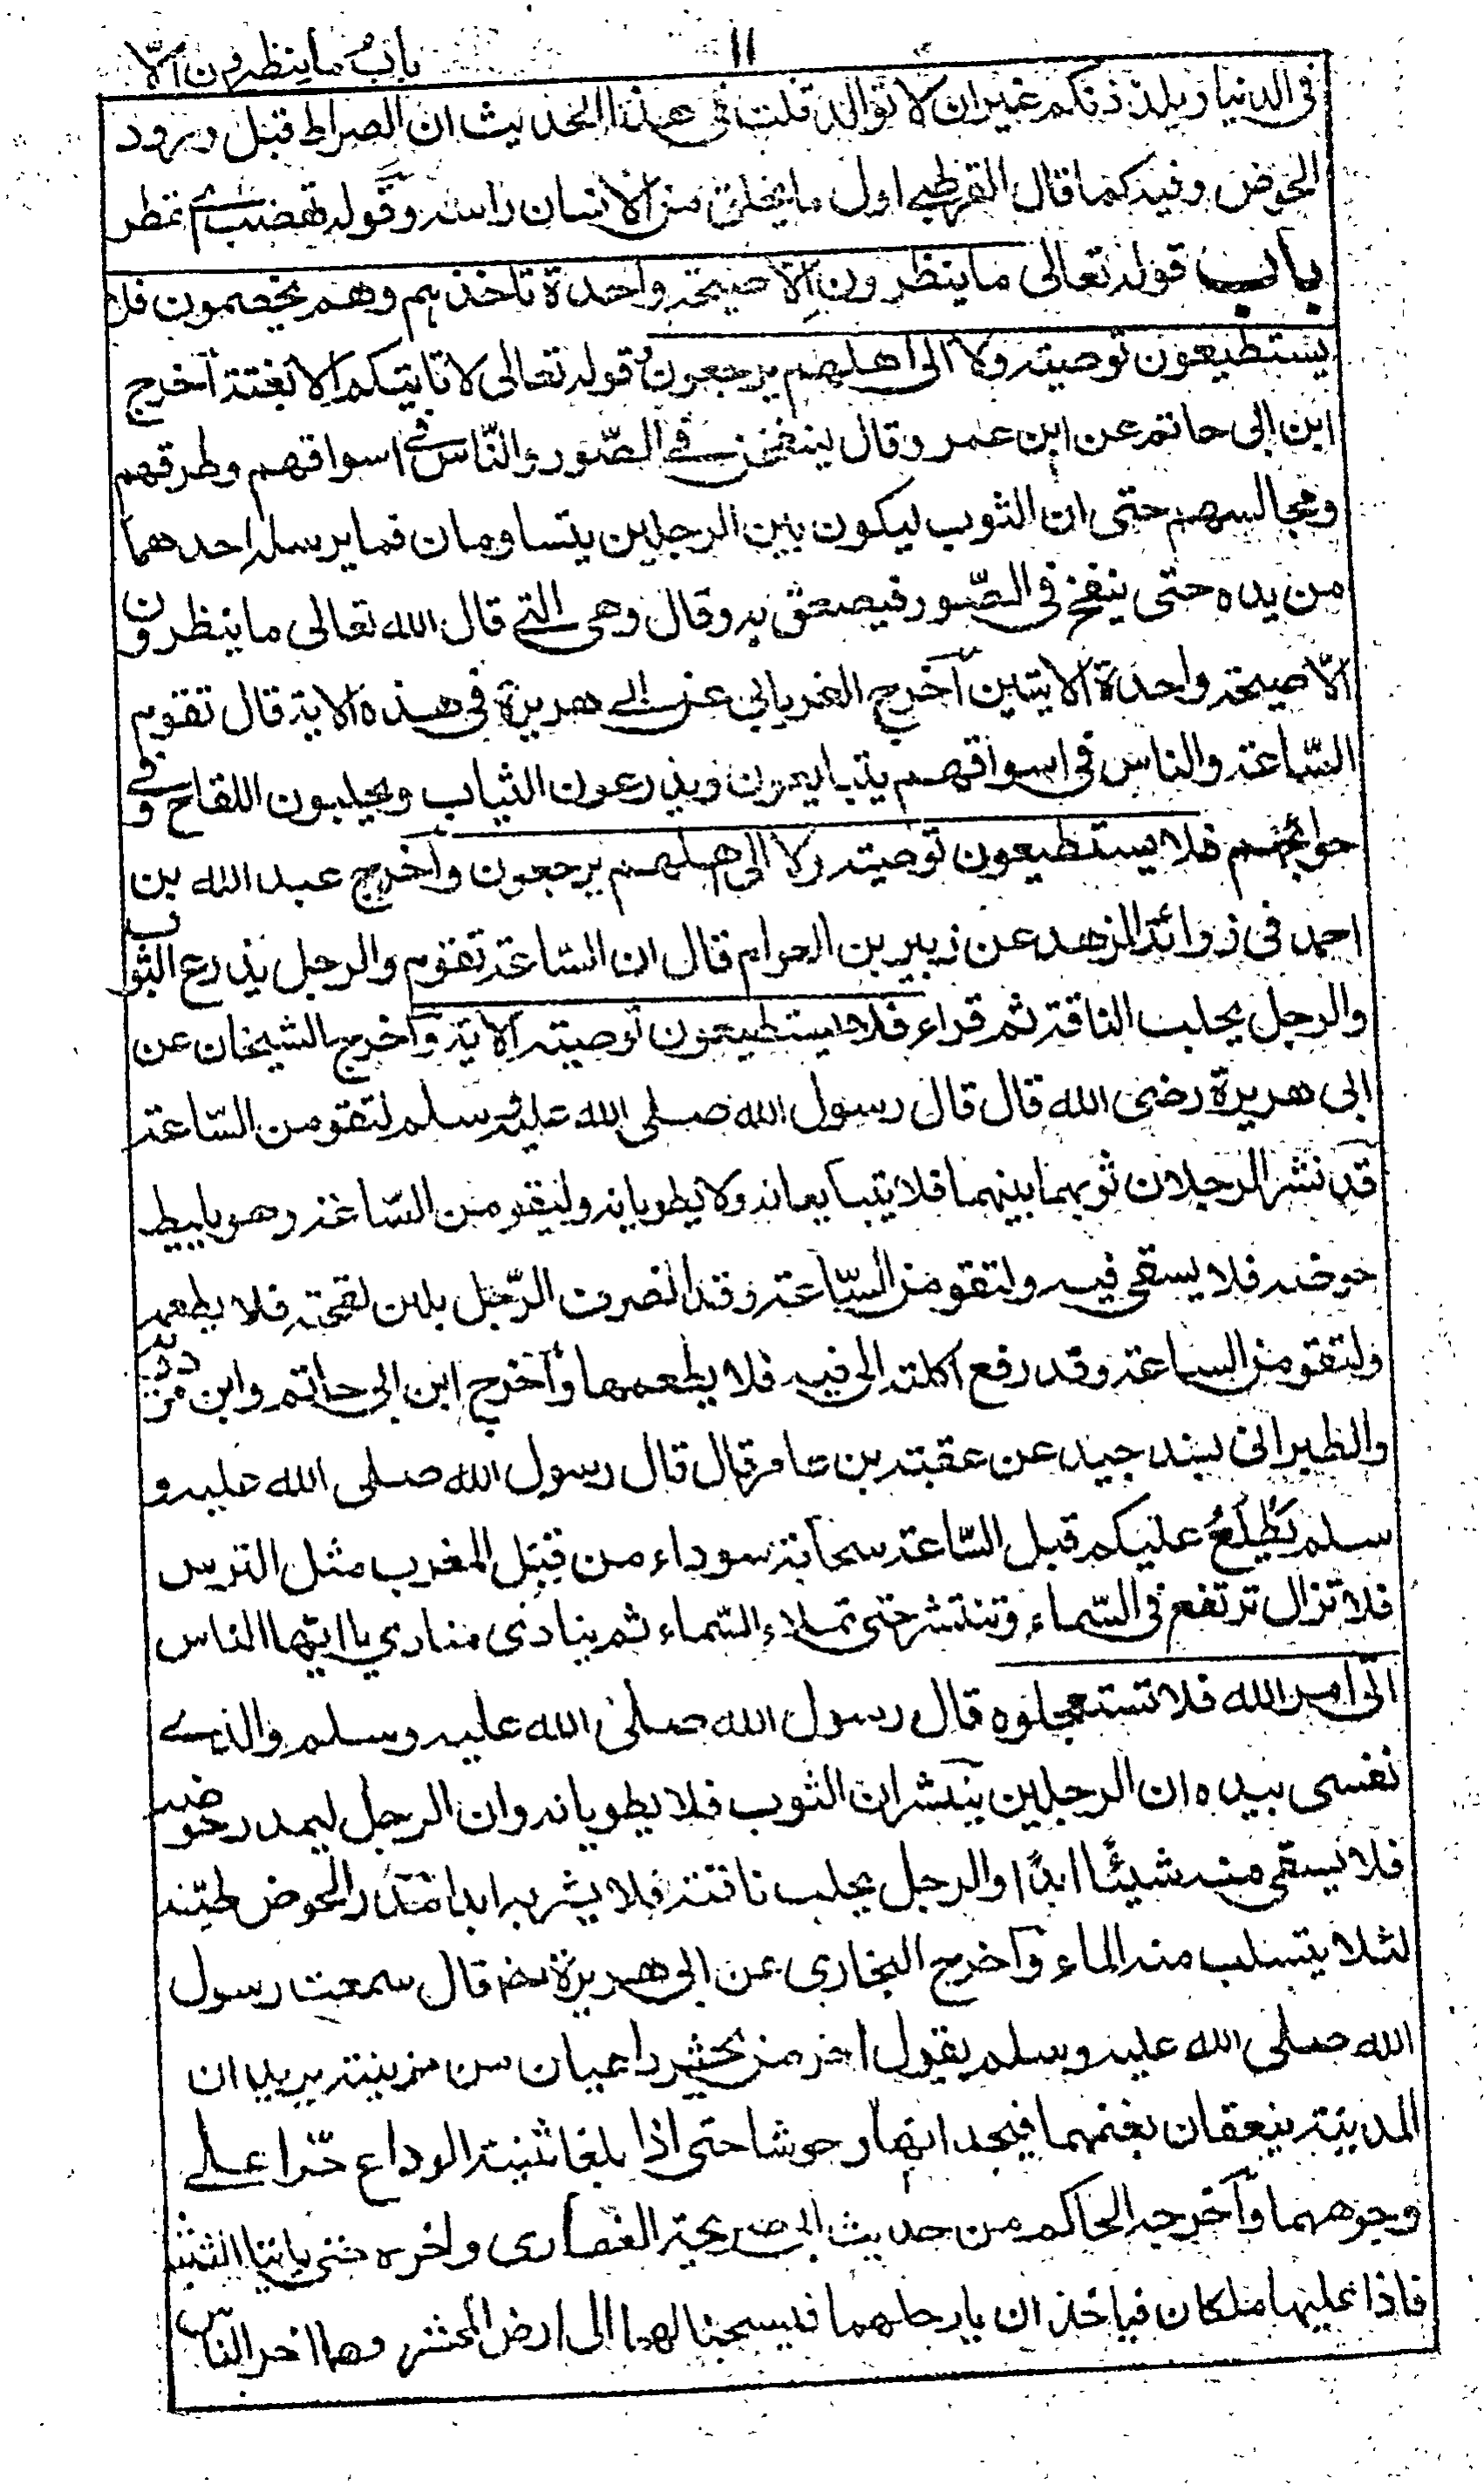 ۱۱ باب ما ينظرون الا
فى الدنيا ويلذذنكم غيران لا توالد قلت فى هذا الحديث ان الصراط قبل ورود
الحوض وفيه كما قال القرطبى اول ما يخلق من الانسان راسه وقوله تهضب اى تمطر
باب قوله تعالى ما ينظرون الا صيحة واحدة تاخذهم وهم يخصمون فلا
يستطيعون توصية ولا الى اهلهم يرجعون قوله تعالى لا تاتيكم الا بغتة اخرج
ابن ابى حاتم عن ابن عمر وقال ينفخن فى الصّور والنّاس فى اسواقهم وطرقهم
ومجالسهم حتى ان الثوب ليكون بين الرجلين يتساومان فما يرسله احدهما
من يده حتى ينفخ فى الصّور فيصعق به وقال وهى التى قال الله تعالى ما ينظرون
الّا صيحة واحدة الايتين اخرج الفريابى عن ابى هريرة فى هذه الاية قال تقوم
السّاعة والناس فى اسواقهم يتبايعون ويذرعون الثياب ويحلبون اللقاح وفى
حوائجهم فلا يستطيعون توصية ولا الى اهلهم يرجعون واخرج عبد الله بن
احمد فى زوائد الزهد عن زبير بن العوام قال ان السّاعة تقوم والرجل يذرع الثوب
والرجل يحلب الناقة ثم قراء فلا يستطيعون توصية الاية واخرج الشيخان عن
ابى هريرة رضى الله قال قال رسول الله صلى الله عليه وسلم لتقومن السّاعة
قد نشر الرجلان ثوبهما بينهما فلا يتبايعانه ولا يطويانه ولتقومن السّاعة وهو يليط
حوضه فلا يسقى فيه ولتقومن السّاعة وقد انصرف الرّجل بلبن لقحته فلا يطعمه
ولتقومن الساعة وقد رفع اكلته الى فيه فلا يطعمها واخرج ابن ابى حاتم وابن مردويه
والطبرانى بسند جيد عن عقبة بن عامر قال قال رسول الله صلى الله عليه و
سلم يَطْلُعُ عليكم قبل السّاعة سحابة سوداء من قبل المغرب مثل الترس
فلا تزال ترتفع فى السّماء وتنتشر حتى تملاء السّماء ثم ينادى منادي يا ايّها الناس
اتى امر الله فلا تستعجلوه قال رسول الله صلى الله عليه وسلم والذى
نفسى بيده ان الرجلين ينشران الثوب فلا يطويانه وان الرجل ليمدر حوضه
فلا يسقى منه شيئًا ابدًا والرجل يحلب ناقته فلا يشربه ابدا مدر الحوض طينه
لئلا يتسلب منه الماء واخرج البخارى عن ابى هريرة رضـ قال سمعت رسول
الله صلى الله عليه وسلم يقول اخر من يحشر راعيان من مزينة يريدان
المدينة ينعقان بغنمهما فيجدانها وحوشا حتى اذا بلغا ثنية الوداع خرّا على
وجوههما واخرجه الحاكم من حديث ابى الغفارى واخره حتى ياتيا الثنية
فاذا عليها ملكان فياخذان بارجلهما فيسحبانهما الى ارض المحشر وهما اخر الناس